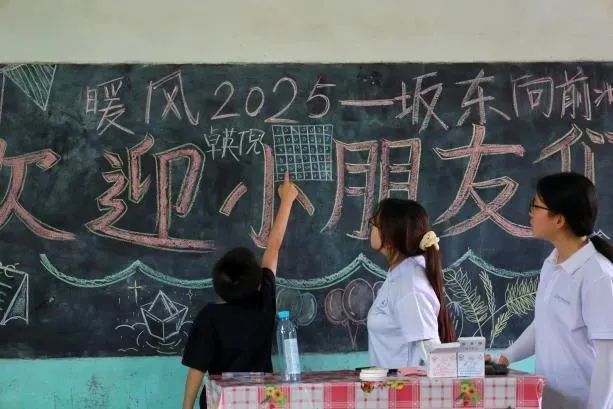 暖风2025一坂东向前
卓英倪
欢迎小朋友们